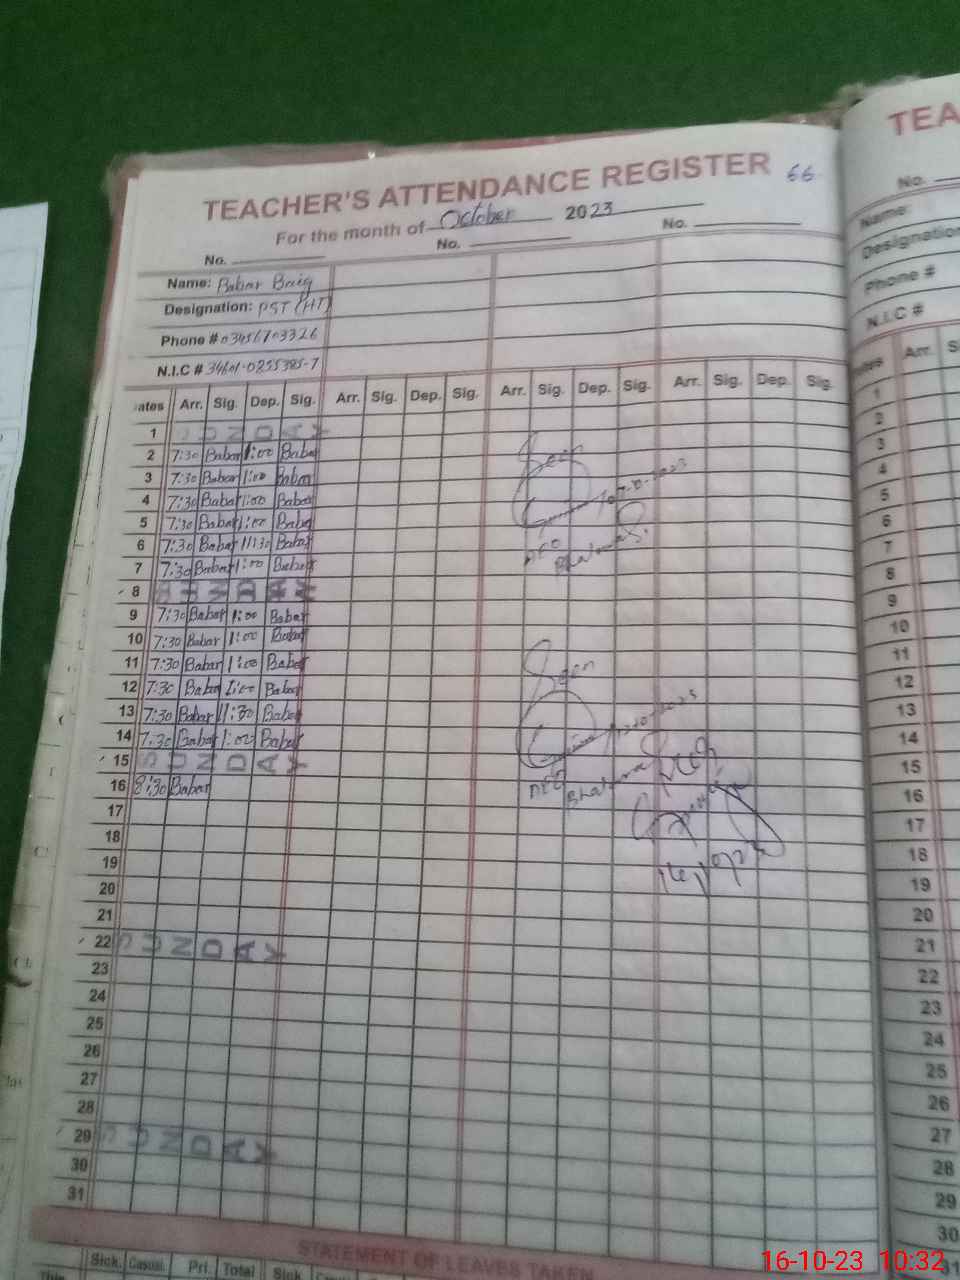 TEACHER'S ATTENDANCE REGISTER 66
For the month of October 2023
No. No. No.
Name: Babar Baig
Designation: PST (HT)
Phone # 03456703326
N.I.C # 34601-0255385-7
ates Arr. Sig. Dep. Sig. Arr. Sig. Dep. Sig. Arr. Sig. Dep. Sig. Arr. Sig. Dep. Sig.
1 SUNDAY
2 7:30 Babar 1:00 Babar
3 7:30 Babar 1:00 Babar
4 7:30 Babar 1:00 Babar
5 7:30 Babar 1:00 Babar
6 7:30 Babar 11:30 Babar
7 7:30 Babar 1:00 Babar
8 SUNDAY
9 7:30 Babar 1:00 Babar
10 7:30 Babar 1:00 Babar
11 7:30 Babar 1:00 Babar
12 7:30 Babar 1:00 Babar
13 7:30 Babar 11:30 Babar
14 7:30 Babar 1:00 Babar
15 SUNDAY
16 8:30 Babar
17
18
19
20
21
22 SUNDAY
23
24
25
26
27
28
29 SUNDAY
30
31
Seen
Seen
STATEMENT OF LEAVES TAKEN
Sick. Casual. Pri. Total Sick.
TEA
No.
Name:
Designation
Phone #
N.I.C #
Arr. S
1
2
3
4
5
6
7
8
9
10
11
12
13
14
15
16
17
18
19
20
21
22
23
24
25
26
27
28
29
30
31
16-10-23 10:32